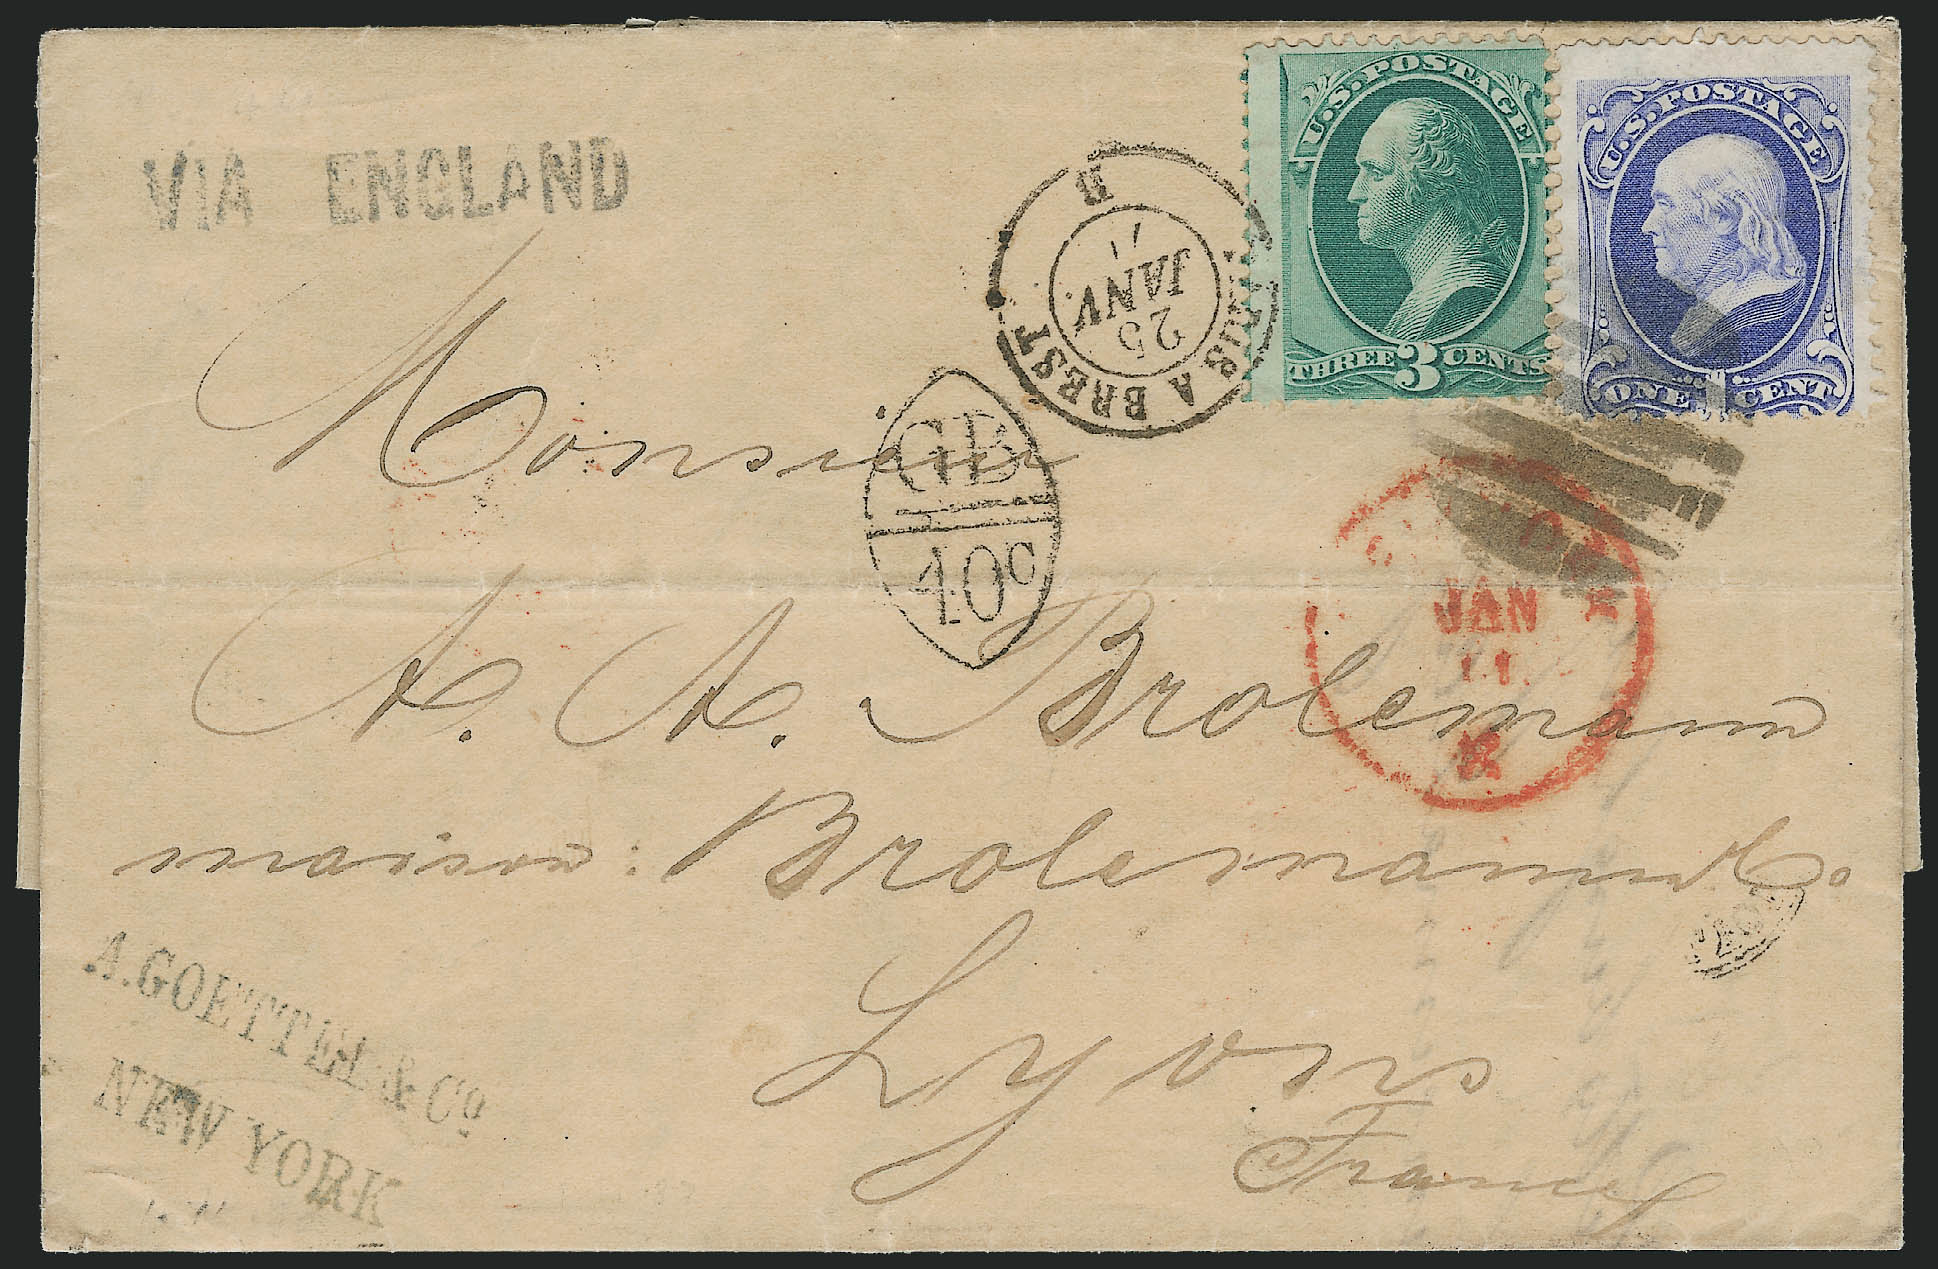 VIA ENGLAND
U.S. POSTAGE
THREE 3 CENTS
U.S. POSTAGE
ONE 1 CENT
A BREST
B
25
JANV.
GB
40c
JAN
11
Monsieur
A. A. Brolemann
maison: Brolemann & Co
Lyons
France
A. GOETTEL & Co
NEW YORK